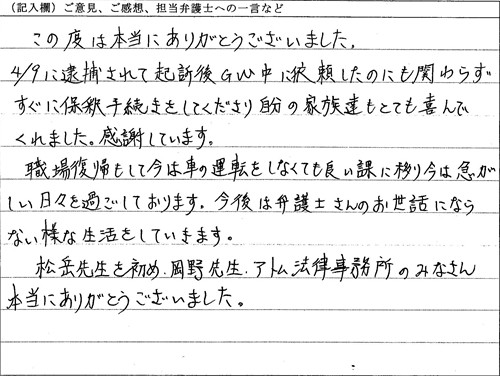 (記入欄) ご意見、ご感想、担当弁護士への一言など
この度は本当にありがとうございました。
4/9に逮捕されて起訴後GW中に依頼したのにも関わらず
すぐに保釈手続きをしてくださり自分の家族達もとても喜んで
くれました。感謝しています。
職場復帰もして今は車の運転をしなくても良い課に移り今は忙が
しい日々を過ごしております。今後は弁護士さんのお世話になら
ない様な生活をしていきます。
松岳先生を初め、岡野先生、アトム法律事務所のみなさん
本当にありがとうございました。